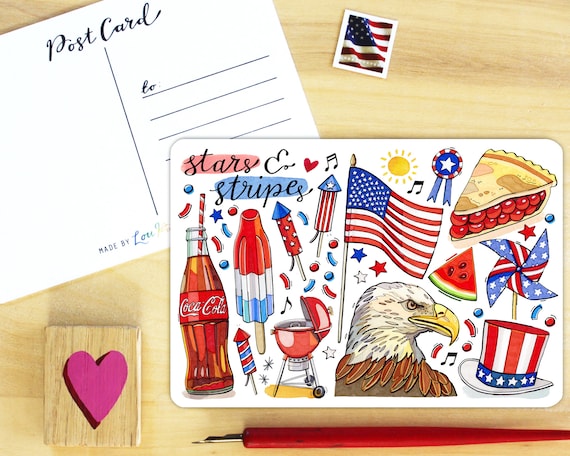 Post Card
to:
MADE BY
stars &
stripes
Coca-Cola